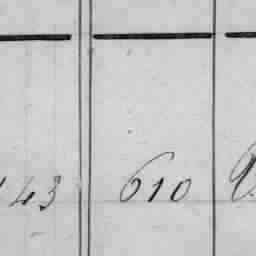 43 610